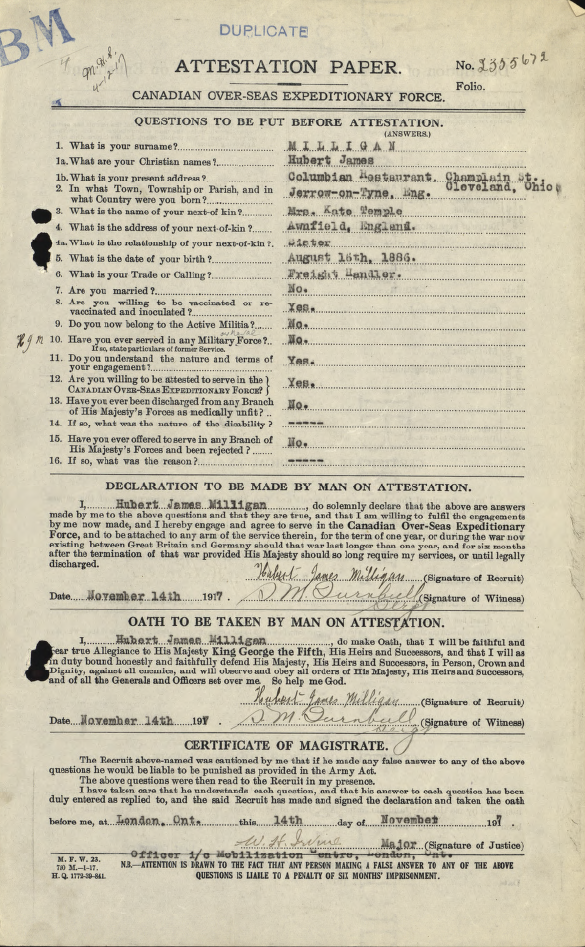 BM
DUPLICATE
4-12-17
ATTESTATION PAPER.
No. 2355672
Folio.
CANADIAN OVER-SEAS EXPEDITIONARY FORCE.
QUESTIONS TO BE PUT BEFORE ATTESTATION.
(ANSWERS.)
1. What is your surname? MILLIGAN
1a. What are your Christian names? Hubert James
1b. What is your present address? Columbian Restaurant. Champlain St. Cleveland, Ohio
2. In what Town, Township or Parish, and in what Country were you born? Jerrow-on-Tyne, Eng.
3. What is the name of your next-of kin? Mrs. Kate Temple
4. What is the address of your next-of-kin? Annfield, England.
4a. What is the relationship of your next-of-kin? Sister
5. What is the date of your birth? August 16th, 1886.
6. What is your Trade or Calling? Freight Handler.
7. Are you married? No.
8. Are you willing to be vaccinated or re-vaccinated and inoculated? Yes.
9. Do you now belong to the Active Militia? No.
10. Have you ever served in any Military Force? No.
If so, state particulars of former Service.
11. Do you understand the nature and terms of your engagement? Yes.
12. Are you willing to be attested to serve in the CANADIAN OVER-SEAS EXPEDITIONARY FORCE? Yes.
13. Have you ever been discharged from any Branch of His Majesty's Forces as medically unfit? No.
14. If so, what was the nature of the disability? -----
15. Have you ever offered to serve in any Branch of His Majesty's Forces and been rejected? No.
16. If so, what was the reason? -----
DECLARATION TO BE MADE BY MAN ON ATTESTATION.
I, Hubert James Milligan, do solemnly declare that the above are answers
made by me to the above questions and that they are true, and that I am willing to fulfil the engagements
by me now made, and I hereby engage and agree to serve in the Canadian Over-Seas Expeditionary
Force, and to be attached to any arm of the service therein, for the term of one year, or during the war now
existing between Great Britain and Germany should that war last longer than one year, and for six months
after the termination of that war provided His Majesty should so long require my services, or until legally
discharged.
Hubert James Milligan (Signature of Recruit)
Date November 14th 1917. S. M. Turnbull Sergt (Signature of Witness)
OATH TO BE TAKEN BY MAN ON ATTESTATION.
I, Hubert James Milligan, do make Oath, that I will be faithful and
bear true Allegiance to His Majesty King George the Fifth, His Heirs and Successors, and that I will as
in duty bound honestly and faithfully defend His Majesty, His Heirs and Successors, in Person, Crown and
Dignity, against all enemies, and will observe and obey all orders of His Majesty, His Heirs and Successors,
and of all the Generals and Officers set over me. So help me God.
Hubert James Milligan (Signature of Recruit)
Date November 14th 1917. S. M. Turnbull Sergt (Signature of Witness)
CERTIFICATE OF MAGISTRATE.
The Recruit above-named was cautioned by me that if he made any false answer to any of the above
questions he would be liable to be punished as provided in the Army Act.
The above questions were then read to the Recruit in my presence.
I have taken care that he understands each question, and that his answer to each question has been
duly entered as replied to, and the said Recruit has made and signed the declaration and taken the oath
before me, at London, Ont. this 14th day of November 1917
Major (Signature of Justice)
Officer i/c Mobilization Centre, London, Ont.
M. F. W. 23.
H. Q. 1772-39-841.
N.B.—ATTENTION IS DRAWN TO THE FACT THAT ANY PERSON MAKING A FALSE ANSWER TO ANY OF THE ABOVE
QUESTIONS IS LIABLE TO A PENALTY OF SIX MONTHS' IMPRISONMENT.